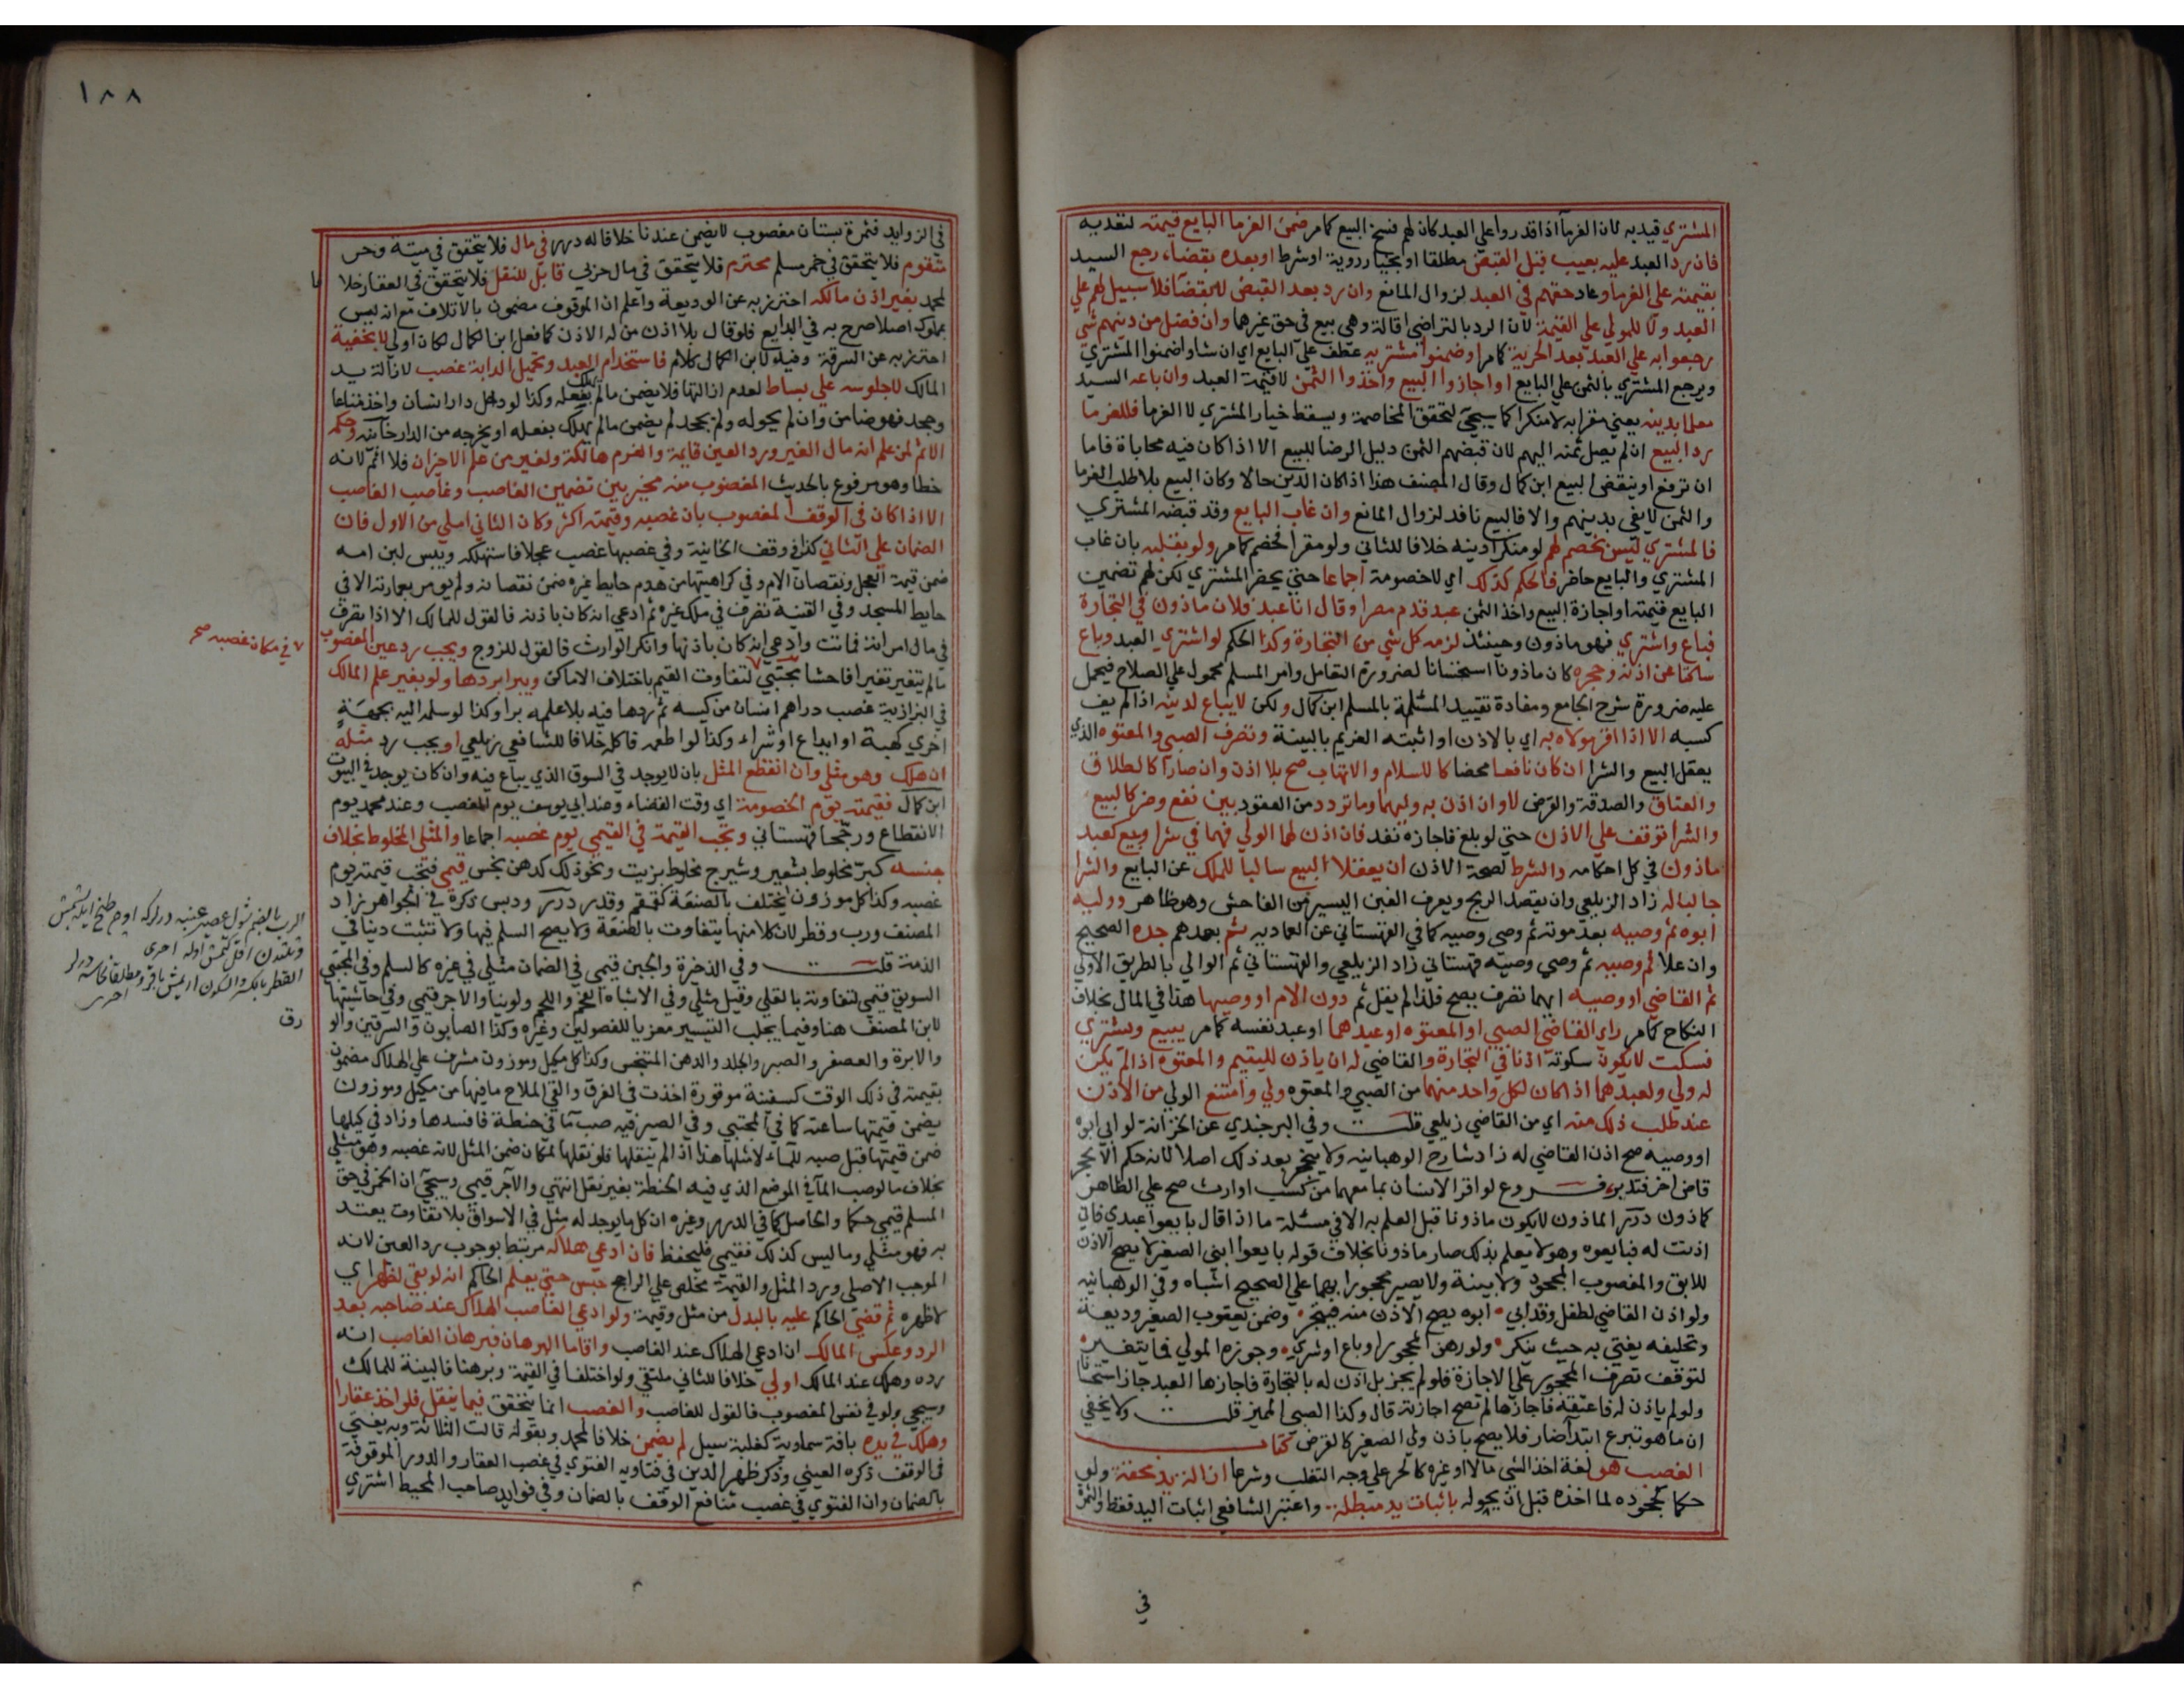 المشتري قيد به لان الغرماآ اذا قدروا علي العبد كان لهم فسخ البيع كما مر ضمن الغرما البايع قيمته لتعديه
فان رد العبد عليه بعيب قبل القبض مطلقا او بخيار رؤية او شرط او بعده بقضاء رجع السيد
بقيمته علي الغرما وعاد حقهم في العبد لزوال المانع وان رد بعد القبض لا بقضآ فلا سبيل لهم علي
العبد ولا للمولي علي القيمة لان الرد بالتراضي اقالة وهي بيع في حق غيرهما وان فضل من دينهم شي
رجعوا به علي العبد بعد الحرية كما مر او ضمنوا مشتريه عطف علي البايع اي ان شاوا ضمنوا المشتري
ويرجع المشتري بالثمن علي البايع او اجازوا البيع واخذوا الثمن لا قيمة العبد وان باعه السيد
معلما بدينه يعني مقرا به لا منكرا كما سيجي لتحقق المخاصمة ويسقط خيار المشتري لا الغرما فللغرما
رد البيع ان لم يصل ثمنه اليهم لان قبضهم الثمن دليل الرضا للبيع الا اذا كان فيه محاباة فاما
ان ترفع او ينقض البيع ابن كمال وقال المصنف هذا اذا كان الدين حالا وكان البيع بلا طلب الغرما
والثمن لا يفي بدينهم والا فالبيع نافد لزوال المانع وان غاب البايع وقد قبضه المشتري
فالمشتري ليس بخصم لهم لو منكرا دينه خلافا للثاني ولو مقرا فخصم كما مر ولو بقلبه بان غاب
المشتري والبايع حاضر فالحكم كذلك اي لا خصومة اجماعا حتي يحضر المشتري لكن لهم تضمين
البايع قيمته او اجازة البيع واخذ الثمن عبد قدم مصرا وقال انا عبد فلان ماذون في التجارة
فباع واشتري فهو ماذون وحينئذ لزمه كل شي من التجارة وكذا الحكم لو اشتري العبد وباع
ساكتا عن اذنه وحجره كان ماذونا استحسانا لضرورة التعامل وامر المسلم محمول علي الصلاح فيحمل
عليه ضرورة شرح الجامع ومفاده تقييد المسئلة بالمسلم ابن كمال ولكن لا يباع لدينه اذا لم يف
كسبه الا اذا اقر مولاه به اي بالاذن او اثبته الغريم بالبينة وتصرف الصبي والمعتوه الذي
يعقل البيع والشرا ان كان نافعا محضا كالاسلام والاتهاب صح بلا اذن وان ضارا كالطلاق
والعتاق والصدقة والقرض لا وان اذن به وليهما وما تردد من العقود بين نفع وضر كالبيع
والشرا توقف علي الاذن حتي لو بلغ فاجازه نفد فان اذن لهما الولي فهما في شرا وبيع كعبد
ماذون في كل احكامه والشرط لصحة الاذن ان يعقلا البيع سالبا للملك عن البايع والشرا
جالبا له زاد الزيلعي وان يقصد الربح ويعرف الغبن اليسير من الفاحش وهو ظاهر ووليه
ابوه ثم وصيه بعد موته ثم وصي وصيه كما في القهستاني عن العمادية ثم بعدهم جده الصحيح
وان علا ثم وصيه ثم وصي وصيه قهستاني زاد الزيلعي والقهستاني ثم الوالي بالطريق الاولي
ثم القاضي او وصيه ايهما تصرف يصح فلذا لم يقل ثم دون الام او وصيها هذا في المال بخلاف
النكاح كما مر راي القاضي الصبي او المعتوه او عبدهما او عبد نفسه كما مر يبيع ويشتري
فسكت لا يكون سكوته اذنا في التجارة والقاضي له ان ياذن لليتيم والمعتوه اذا لم يكن
له ولي ولعبدهما اذا كان لكل واحد منهما من الصبي والمعتوه ولي وامتنع الولي من الاذن
عند طلب ذلك منه اي من القاضي زيلعي قلت وفي البرجندي عن الخزانة لو ابي ابوه
او وصيه صح اذن القاضي له زاد شارح الوهبانيه ولا ينحجر بعد ذلك اصلا لانه حكم الا بحجر
قاض اخر فتدبر فروع لو اقر الانسان بما معهما من كسب او ارث صح علي الظاهر
كماذون درر الماذون لا يكون ماذونا قبل العلم به الا في مسئلة ما اذا قال بايعوا عبدي فاني
اذنت له فبايعوه وهو لا يعلم بذلك صار ماذونا بخلاف قوله بايعوا ابني الصغير لا يصح الاذن
للابق والمغصوب المجحود ولا بينة ولا يصير محجورا بهما علي الصحيح اشباه وفي الوهبانيه
ولو اذن القاضي لطفل وقد ابي ابوه يصح الاذن منه فيتجر وضمن يعقوب الصغير وديعة
وتحليفه يفتي به حيث ينكر ولو رهن المحجور او باع او شري وجوزه المولي فما يتغير
لتوقف تصرف المحجور علي الاجازة فلو لم يجز بل اذن له بالتجارة فاجازها العبد جاز استحسانا
ولو لم ياذن له فاعتقه فاجازها لم تصح اجازته قال وكذا الصبي المميز قلت ولا يخفي
ان ما هو تبرع ابتدآ ضار فلا يصح باذن ولي الصغير كالقرض كتاب
الغصب هو لغة اخذ الشي مالا او غيره كالحر علي وجه التغلب وشرعا ازالة يد محقة ولو
حكما كجحوده لما اخذه قبل ان يحوله باثبات يد مبطلة واعتبر الشافعي اثبات اليد فقط والثمرة
في
١٨٨
في الزوايد فثمرة بستان مغصوب لا يضمن عندنا خلافا له درر في مال فلا يتحقق في ميتة وحر
متقوم فلا يتحقق في خمر مسلم محترم فلا يتحقق في مال حربي قابل للنقل فلا يتحقق في العقار خلافا
لمحمد بغير اذن مالكه احترز به عن الوديعة واعلم ان الموقوف مضمون بالاتلاف مع انه ليس
بمملوك اصلا صرح به في البدايع فلو قال بلا اذن من له الاذن كما فعل ابن الكمال لكان اولي لا بخفية
احترز به عن السرقة وفيه لابن الكمال كلام فاستخدام العبد وتحميل الدابة غصب لازالة يد
المالك لا جلوسه علي بساط لعدم ازالتها فلا يضمن ما لم يهلك بفعله وكذا لو دخل دار انسان واخذ متاعا
وجحد فهو ضامن وان لم يحوله ولم يجحد لم يضمن ما لم يهلك بفعله او يخرجه من الدار خانيه وحكمه
الاثم لمن علم انه مال الغير ورد العين قايمة والغرم هالكة ولغير من علم الاخران فلا اثم لانه
خطا وهو مرفوع بالحديث المغصوب منه مخير بين تضمين الغاصب وغاصب الغاصب
الا اذا كان في الوقف المغصوب بان غصبه وقيمته اكثر وكان الثاني املي من الاول فان
الضمان علي الثاني كذا في وقف الخانية وفي غصبها غصب عجلا فاستهلكه ويبس لبن امه
ضمن قيمة العجل ونقصان الام وفي كراهيتها من هدم حايط غيره ضمن نقصانه ولم يومر بعمارته الا في
حايط المسجد وفي القنية تصرف في ملك غيره ثم ادعي انه كان باذنه فالقول للمالك الا اذا تصرف
في مال امراته فماتت وادعي انه كان باذنها وانكر الوارث فالقول للزوج ويجب رد عين المغصوب
ما لم يتغير تغيرا فاحشا مجتبي لتفاوت القيم باختلاف الاماكن ويبرا بردها ولو بغير علم المالك
في البزازية غصب دراهم انسان من كيسه ثم ردها فيه بلا علمه برا وكذا لو سلمه اليه بجهة
اخري كهبة او ايداع او شراء وكذا لو اطعمه فاكله خلافا للشافعي زيلعي او يجب رد مثله
ان هلك وهو مثلي وان انقطع المثل بان لا يوجد في السوق الذي يباع فيه وان كان يوجد في البيوت
ابن كمال فقيمته يوم الخصومة اي وقت القضاء وعند ابي يوسف يوم الغصب وعند محمد يوم
الانقطاع ورجحا قهستاني وتجب القيمة في القيمي يوم غصبه اجماعا والمثلي المخلوط بخلاف
جنسه كبر مخلوط بشعير وشيرج مخلوط بزيت ونحو ذلك كدهن نجس قيمي فتجب قيمته يوم
غصبه وكذا كل موزون يختلف بالصنعة كقمقم وقدر درر ودبس ذكره في الجواهر زاد
المصنف ورب وقطر لان كلا منها يتفاوت بالصنعة ولا يصح السلم فيها ولا تثبت دينا في
الذمة قلت وفي الذخيرة والجبن قيمي في الضمان مثلي في غيره كالسلم وفي المجتبي
السويق قيمي لتفاوته بالقلي وقيل مثلي وفي الاشباه الفحم واللحم ولو نيا والاجر قيمي وفي حاشيتها
لابن المصنف هنا وفيما يجلب التيسير معزيا للفصولين وغيره وكذا الصابون والسرقين والو
والابرة والعصفر والصبر والجلد والدهن المتنجس وكذا كل مكيل وموزون مشرف علي الهلاك مضمون
بقيمته في ذلك الوقت كسفينة موقورة اخذت في الغرق والقي الملاح ما فيها من مكيل وموزون
يضمن قيمتها ساعته كما في المجتبي وفي الصيرفيه صب مآ في حنطة فافسدها وزاد في كيلها
ضمن قيمتها قبل صبه للمآء لا مثلها هذا اذا لم ينقلها فلو نقلها لمكان ضمن المثل لانه غصبه وهو مثلي
بخلاف ما لو صب المآ في الموضع الذي فيه الحنطة بغير نقل انتهي والآجر قيمي وسيجي ان الخمر في حق
المسلم قيمي حكما والحاصل كما في الدرر وغيره ان كل ما يوجد له مثل في الاسواق بلا تفاوت يعتد
به فهو مثلي وما ليس كذلك فقيمي فليحفظ فان ادعي هلاكه مرتبط بوجوب رد العين لانه
الموجب الاصلي ورد المثل والقيمة مخلص علي الراجح حبس حتي يعلم الحاكم انه لو بقي لظهر اي
لاظهره ثم قضي الحاكم عليه بالبدل من مثل وقيمة ولو ادعي الغاصب الهلاك عند صاحبه بعد
الرد وعكس المالك ان ادعي الهلاك عند الغاصب واقاما البرهان فبرهان الغاصب انه
رده وهلك عند المالك اولي خلافا للثاني ملتقي ولو اختلفا في القيمة وبرهنا فالبينة للمالك
وسيجي ولو في نفس المغصوب فالقول للغاصب والغصب انما يتحقق فيما ينقل فلو اخذ عقارا
وهلك في يده بافة سماوية كغلبة سيل لم يضمن خلافا لمحمد وبقوله قالت الثلاثة وبه يفتي
في الوقف ذكره العيني وذكر ظهير الدين في فتاويه الفتوي في غصب العقار والدور الموقوفة
بالضمان وان الفتوي في غصب منافع الوقف بالضمان وفي فوايد صاحب المحيط اشتري
٧ في مكان غصبه صح